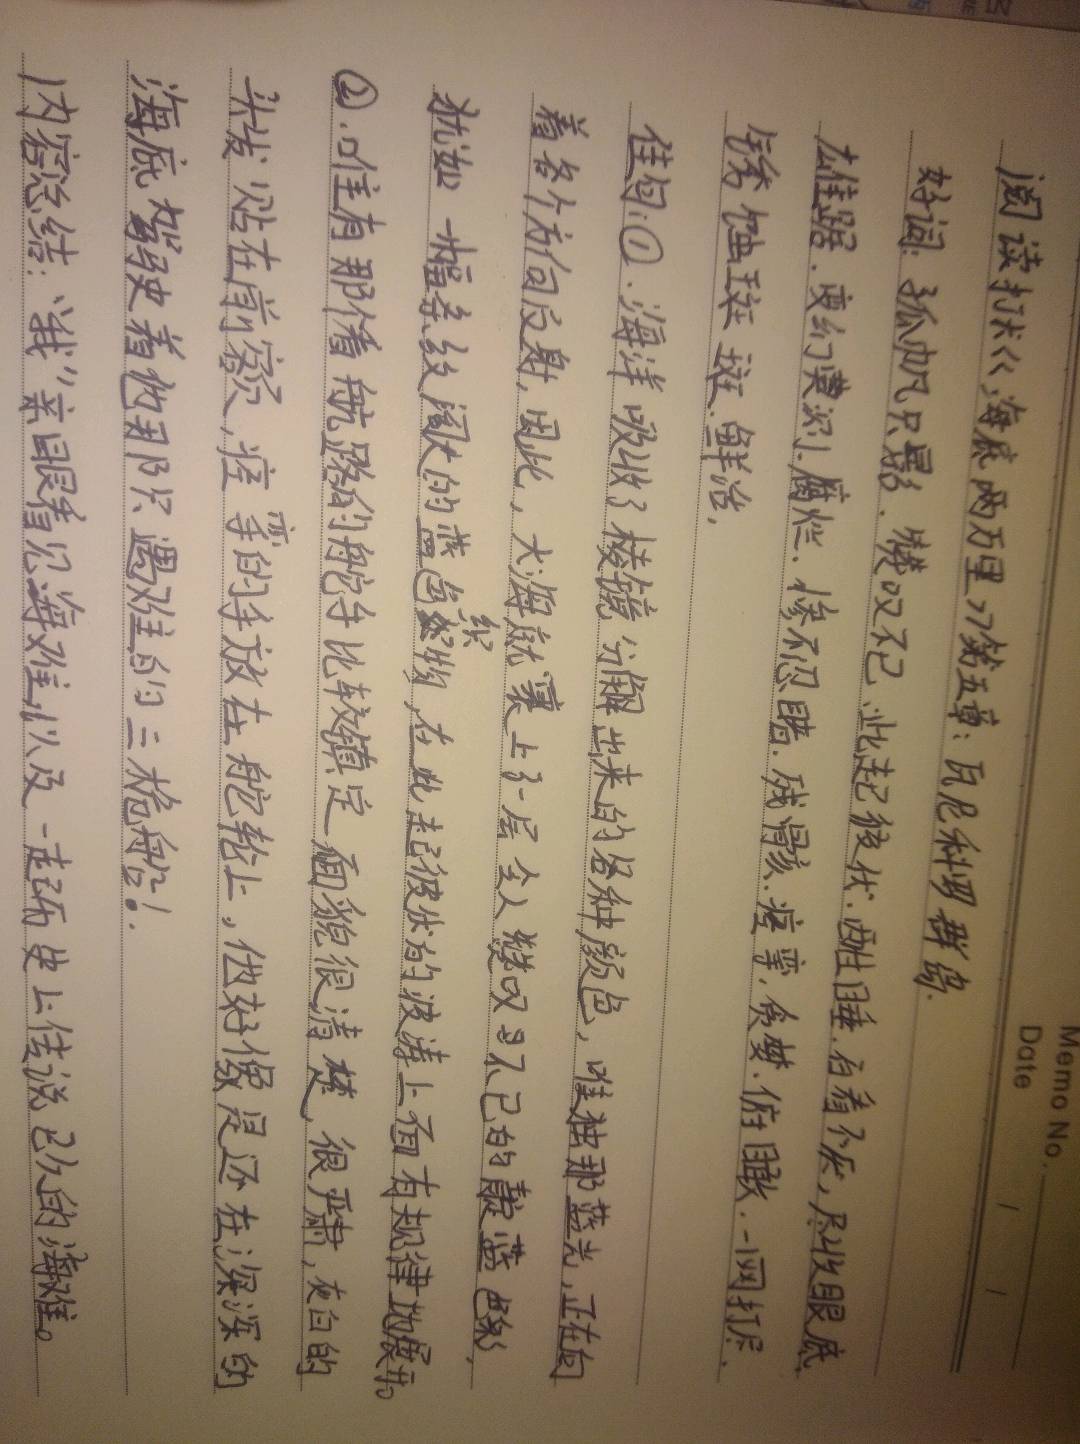 Memo No.
Date / /
阅读打卡《海底两万里》第五章:瓦尼科罗群岛.
好词:孤帆只影.赞叹不已.此起彼伏.酣睡.百看不厌,尽收眼底
雄踞.腐烂.惨不忍睹.残骸.痉挛.俯瞰.一网打尽.
锈蚀斑斑.鲜治.
佳句:①.海洋吸收了棱镜分解出来的各种颜色,唯独那蓝光,正在向
着各个方向反射,因此,大海就裹上了一层令人赞叹不已的靛蓝色彩,
犹如一幅条纹阔大的蓝色织物,在此起彼伏的波涛上面有规律地展开。
②.唯有那个看航路的舵手比较镇定,面貌很清楚,很严肃,灰白的
头发贴在前额,痉挛的手放在舵轮上,他好像是还在深深的
海底驾驶着他那只遇难的三桅船!.
内容总结:“我”亲眼看见海难,以及一起历史上传说已久的海难。